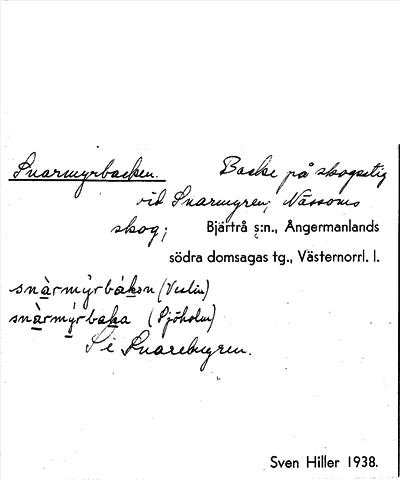 Snarmyrbacken. Backe på skogsstig
vid Snarmyren; Nässoms
skog; Bjärtrå s:n., Ångermanlands
södra domsagas tg., Västernorrl. l.
snàrmy̌rbákɘn (Veslin)
snàrmýrbaka (Sjöholm)
Se Snaremyren.
Sven Hiller 1938.